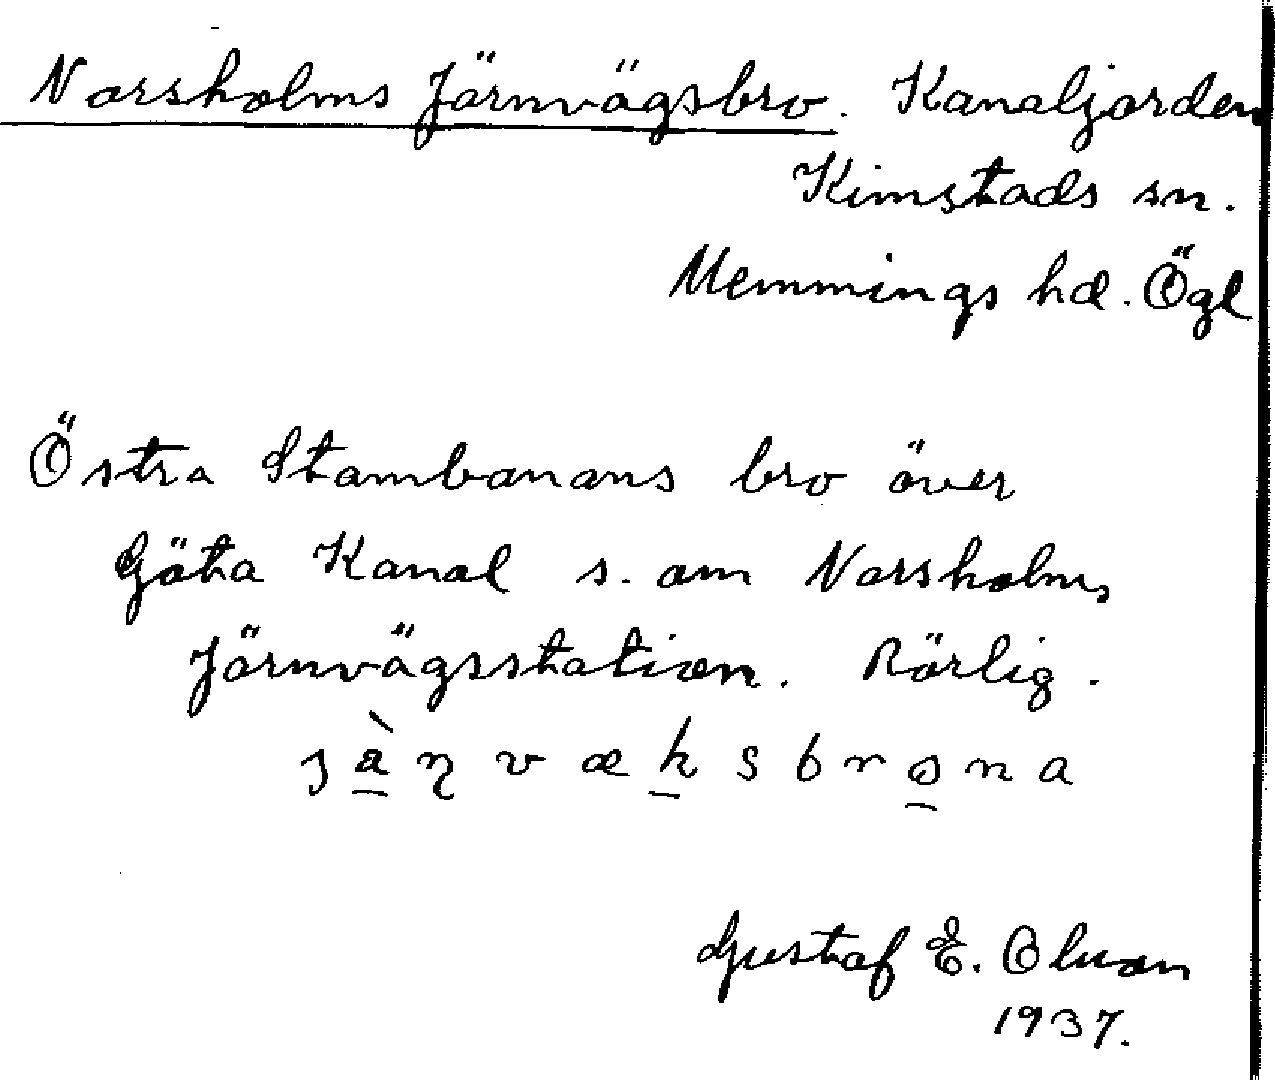 Norsholms Järnvägsbro. Kanaljorden
Kimstads sn.
Memmings hd. Ögl
Östra Stambanans bro över
Göta Kanal s. om Norsholms
Järnvägsstation. Rörlig.
Gustaf E. Olson
1937.